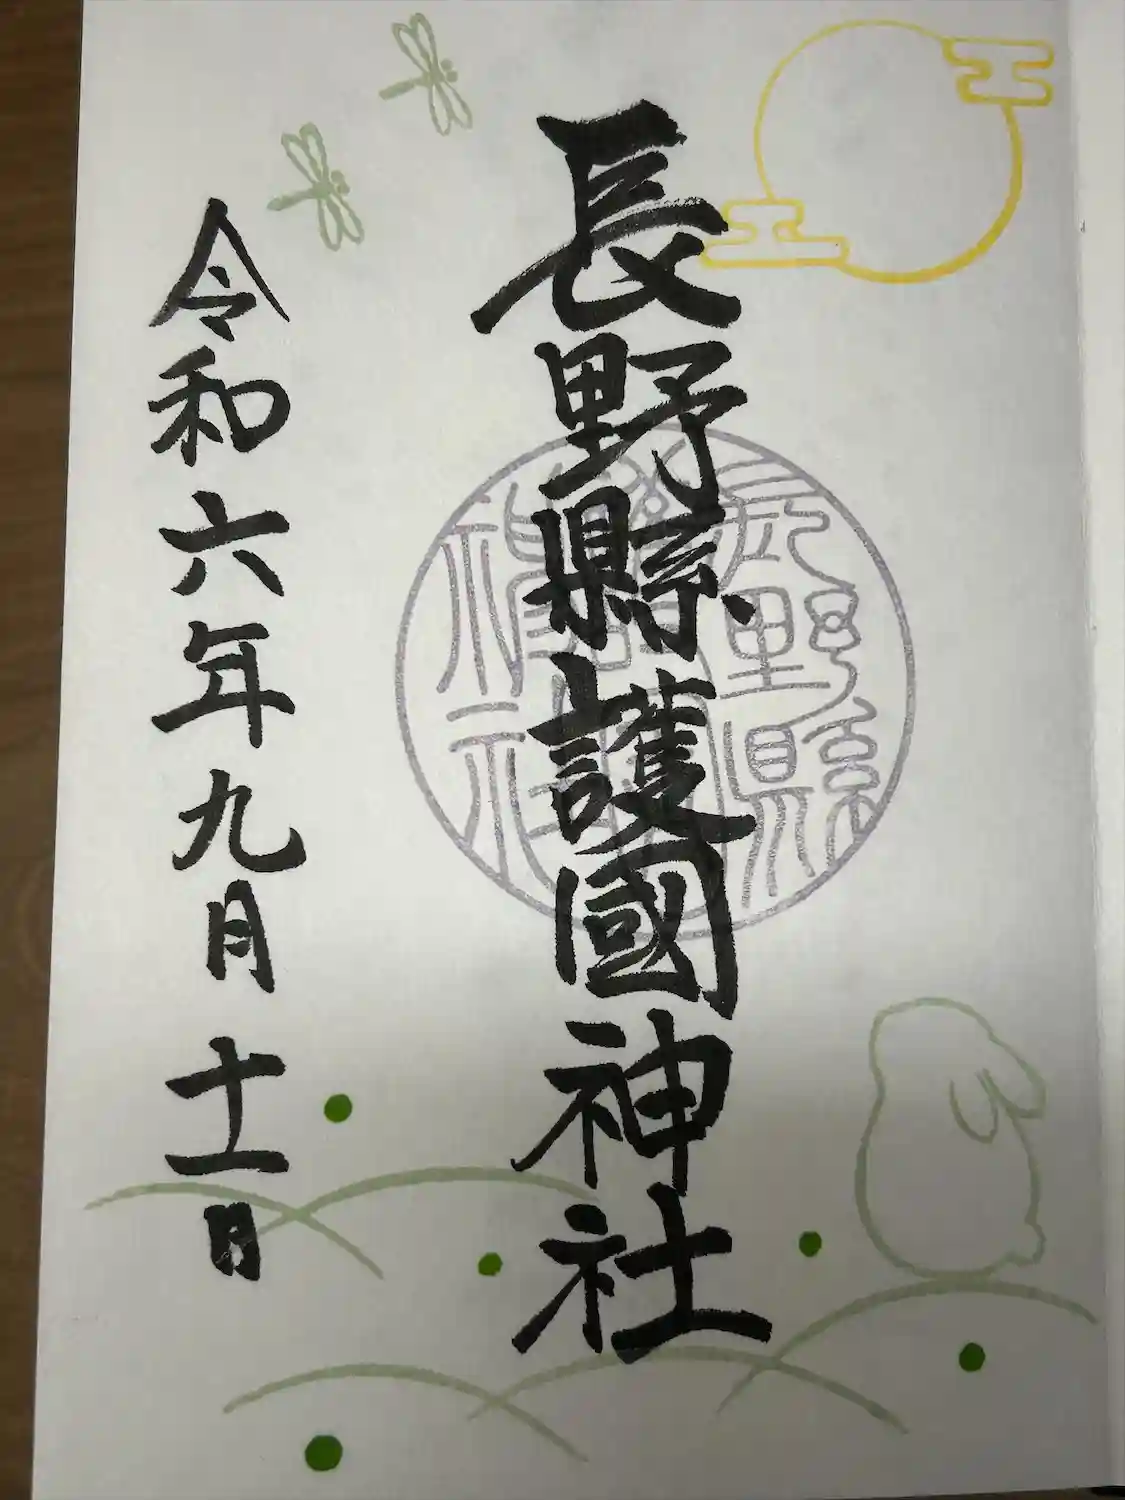 長野縣護國神社
令和六年九月十一日
長野縣
護國
神社